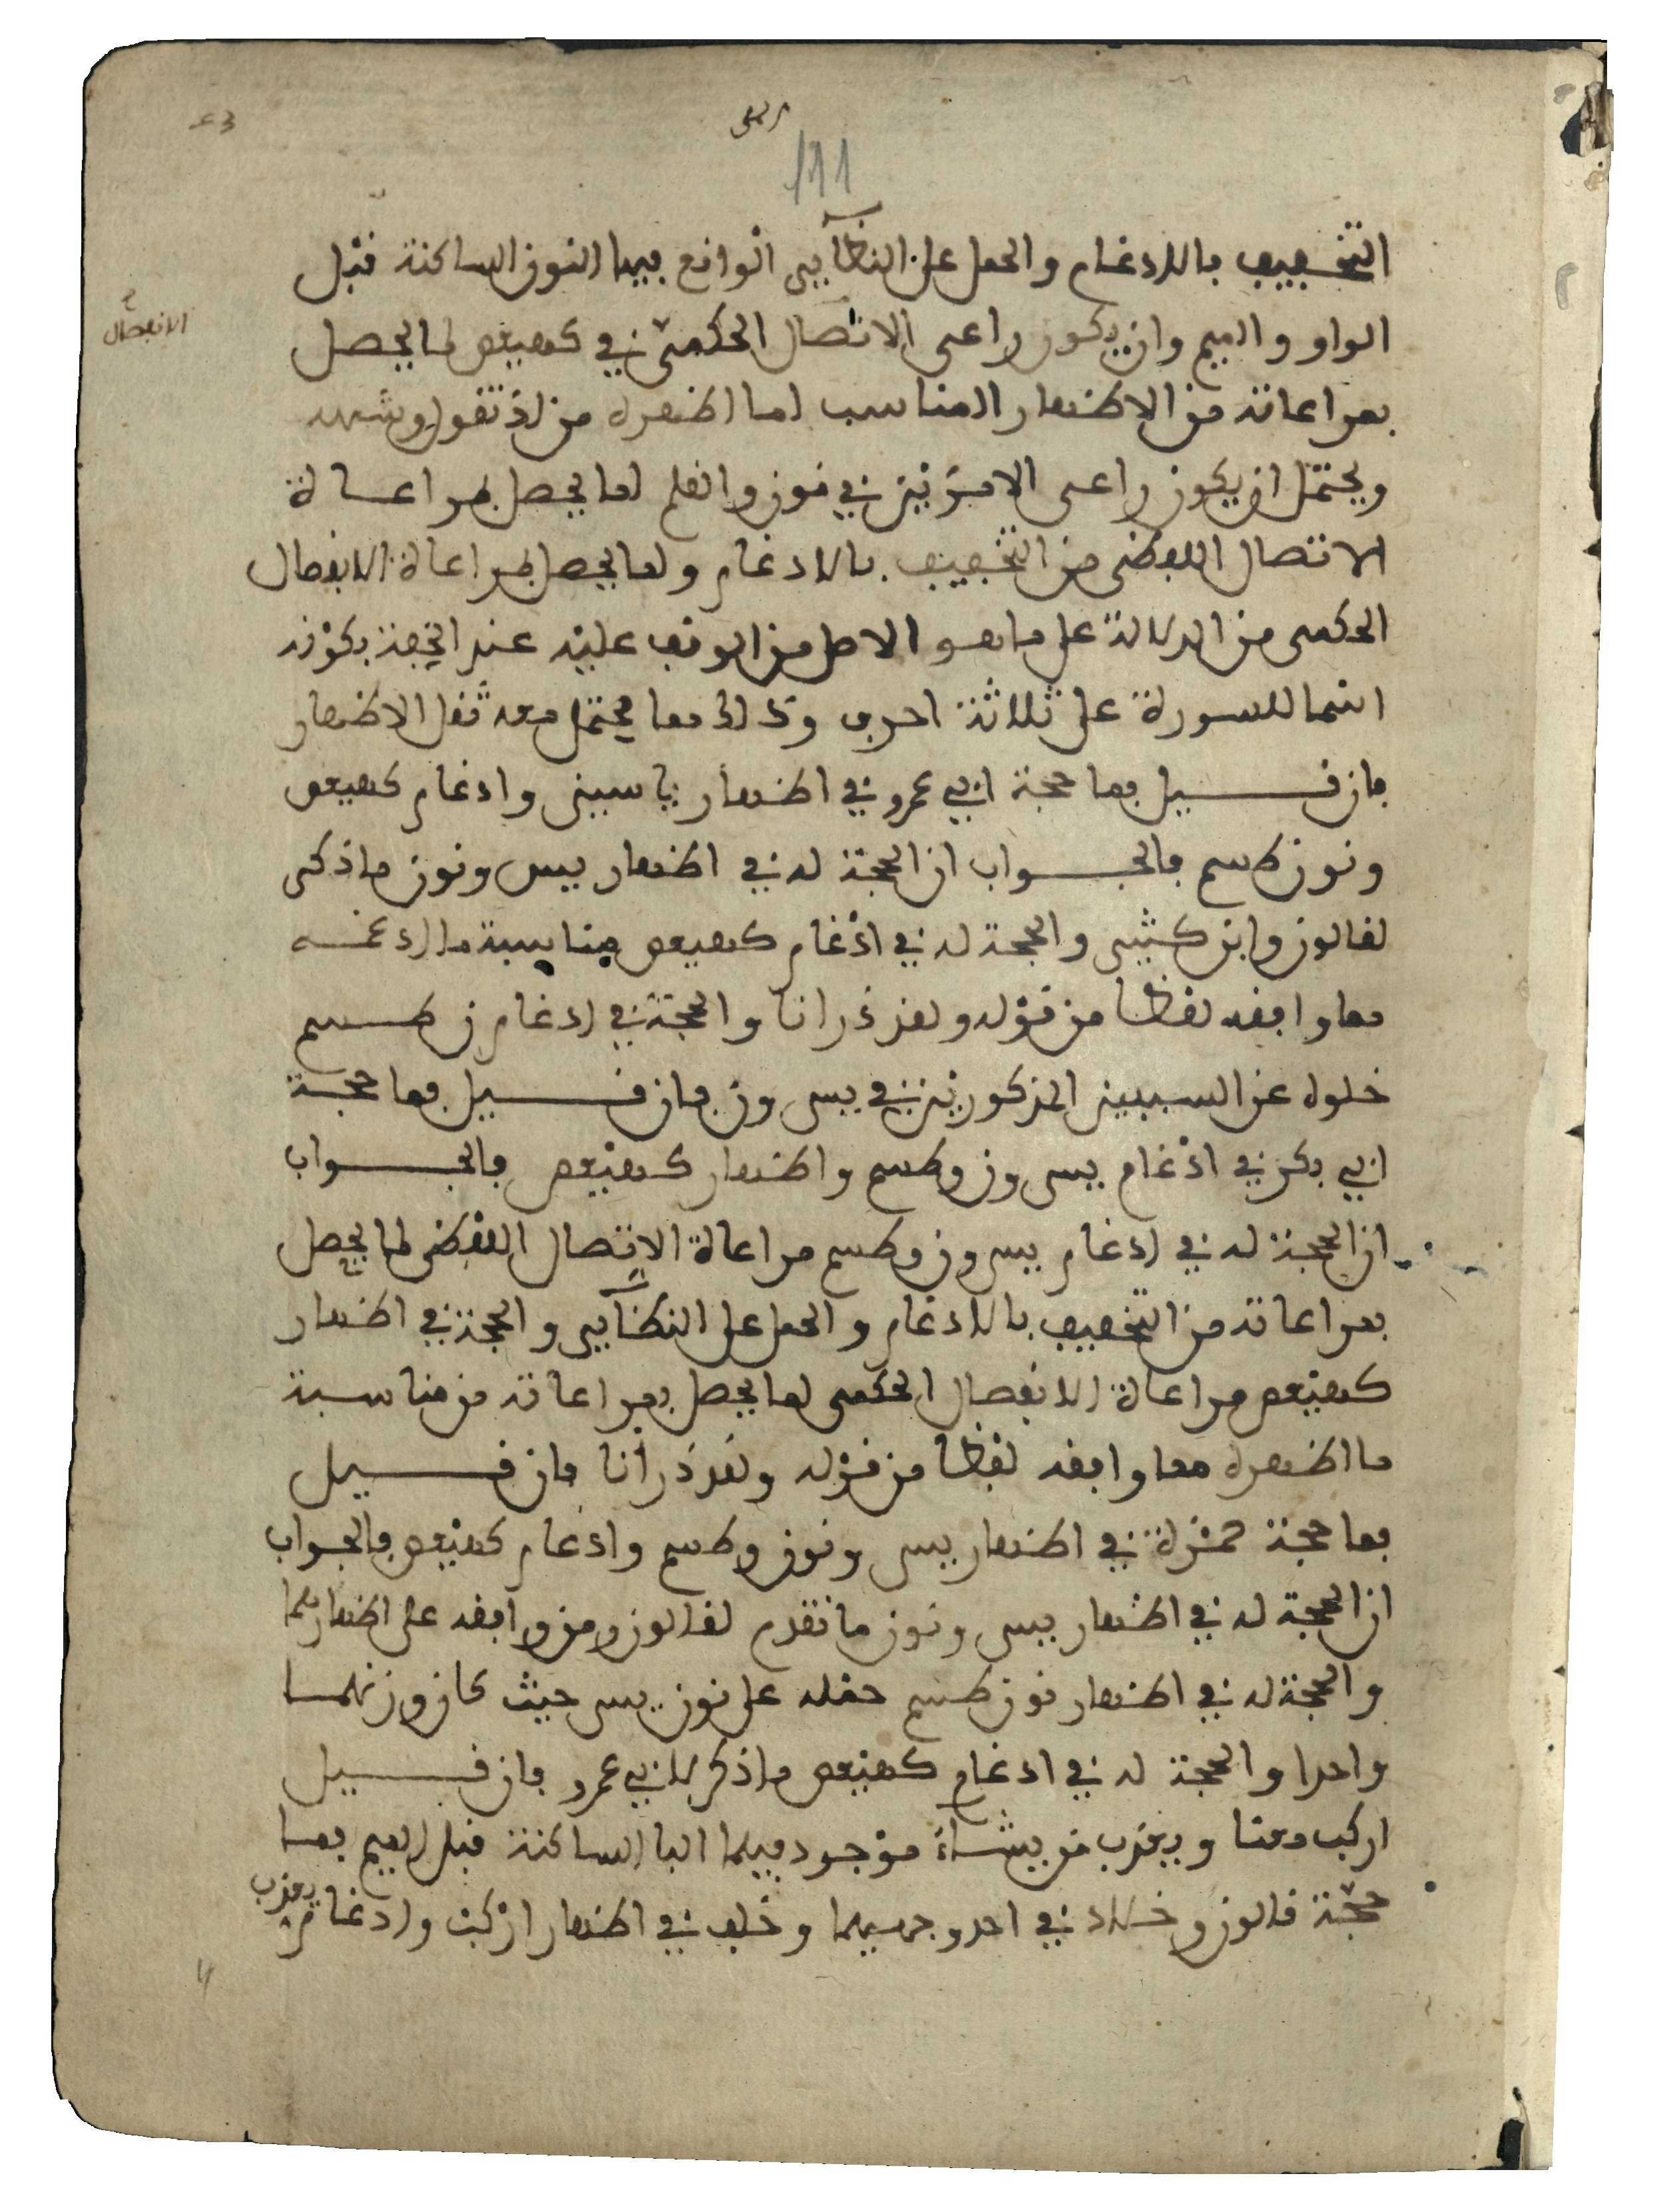 111
التخفيف بالادغام والحمل على النظائر الواقع فيها النون الساكنة قبل
الواو والميم وان يكون راعى الاتصال الحكمي في كهيعص لما يحصل
الانفصال
بمراعاته من الاظهار المناسب لما اظهره من اذ تقول وشبهه
ويحتمل ان يكون راعى الامرين في نون والقلم لما يحصل بمراعاة
الاتصال اللفظي من التخفيف بالادغام ولما يحصل بمراعاة الانفصال
الحكمي من الدلالة على ما هو الاصل من الوقف عليه عند الخفة بكونه
اسما للسورة على ثلاثة احرف وذلك مما يحتمل معه ثقل الاظهار
فان قيل فما حجة ابي عمرو في اظهار ياسين وادغام كهيعص
ونون طسم فالجواب ان الحجة له في اظهار يس ونون ما ذكر
لقالون وابن كثير والحجة له في ادغام كهيعص مناسبة ما ادغمه
مما وافقه لفظا من قوله ولقد ذرانا والحجة في ادغام ن طسم
خلوه عن السببين المذكورين في يس ون فان قيل فما حجة
ابي بكر في ادغام يس ون وطسم واظهار كهيعص فالجواب
ان الحجة له في ادغام يس ون وطسم مراعاة الاتصال اللفظي لما يحصل
بمراعاته من التخفيف بالادغام والحمل على النظائر والحجة في اظهار
كهيعص مراعاة الانفصال الحكمي لما يحصل بمراعاته من مناسبة
ما اظهره مما وافقه لفظا من قوله ولقد ذرانا فان قيل
فما حجة حمزة في اظهار يس ونون وطسم وادغام كهيعص فالجواب
ان الحجة له في اظهار يس ونون ما تقدم لقالون ومن وافقه على اظهارهما
والحجة له في اظهار نون طسم حمله على نون يس حيث كان وزنهما
واحدا والحجة له في ادغام كهيعص ما ذكر لابي عمرو فان قيل
اركب معنا ويعذب من يشاء موجود فيهما البا الساكنة قبل الميم فما
حجة قالون وخلاد في احد وجهيهما وخلف في اظهار اركب وادغام يعذب من